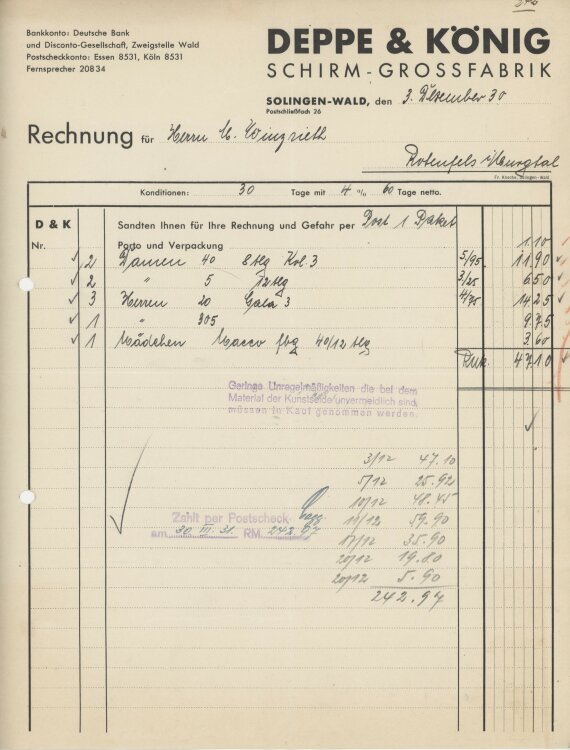 Bankkonto: Deutsche Bank
und Disconto-Gesellschaft, Zweigstelle Wald
Postscheckkonto: Essen 8531, Köln 8531
Fernsprecher 20834
DEPPE & KÖNIG
SCHIRM-GROSSFABRIK
SOLINGEN-WALD, den 3. Dezember 30
Postschließfach 26
Rechnung für Herrn
Rotenfels i/Murgtal
Konditionen: 30 Tage mit 4 % 60 Tage netto.
D & K Sandten Ihnen für Ihre Rechnung und Gefahr per Post 1 Paket
Nr. Porto und Verpackung 1.10
2 Damen 40 8tlg Kol. 3 5/95 11.90
2 " 5 12tlg 3/25 6.50
3 Herren 20 Gala 3 4/75 14.25
1 " 305 9.75
1 Mädchen Macco fbg 40/12 tlg 3.60
RMk. 47.10
Geringe Unregelmäßigkeiten die bei dem
Material der Kunstseide unvermeidlich sind,
müssen in Kauf genommen werden.
3/12 47.10
5/12 25.92
10/12 48.45
11/12 59.90
17/12 35.90
20/12 19.80
20/12 5.90
242.97
Zahlt per Postscheck
am 30. III. 31. RM. 242.97